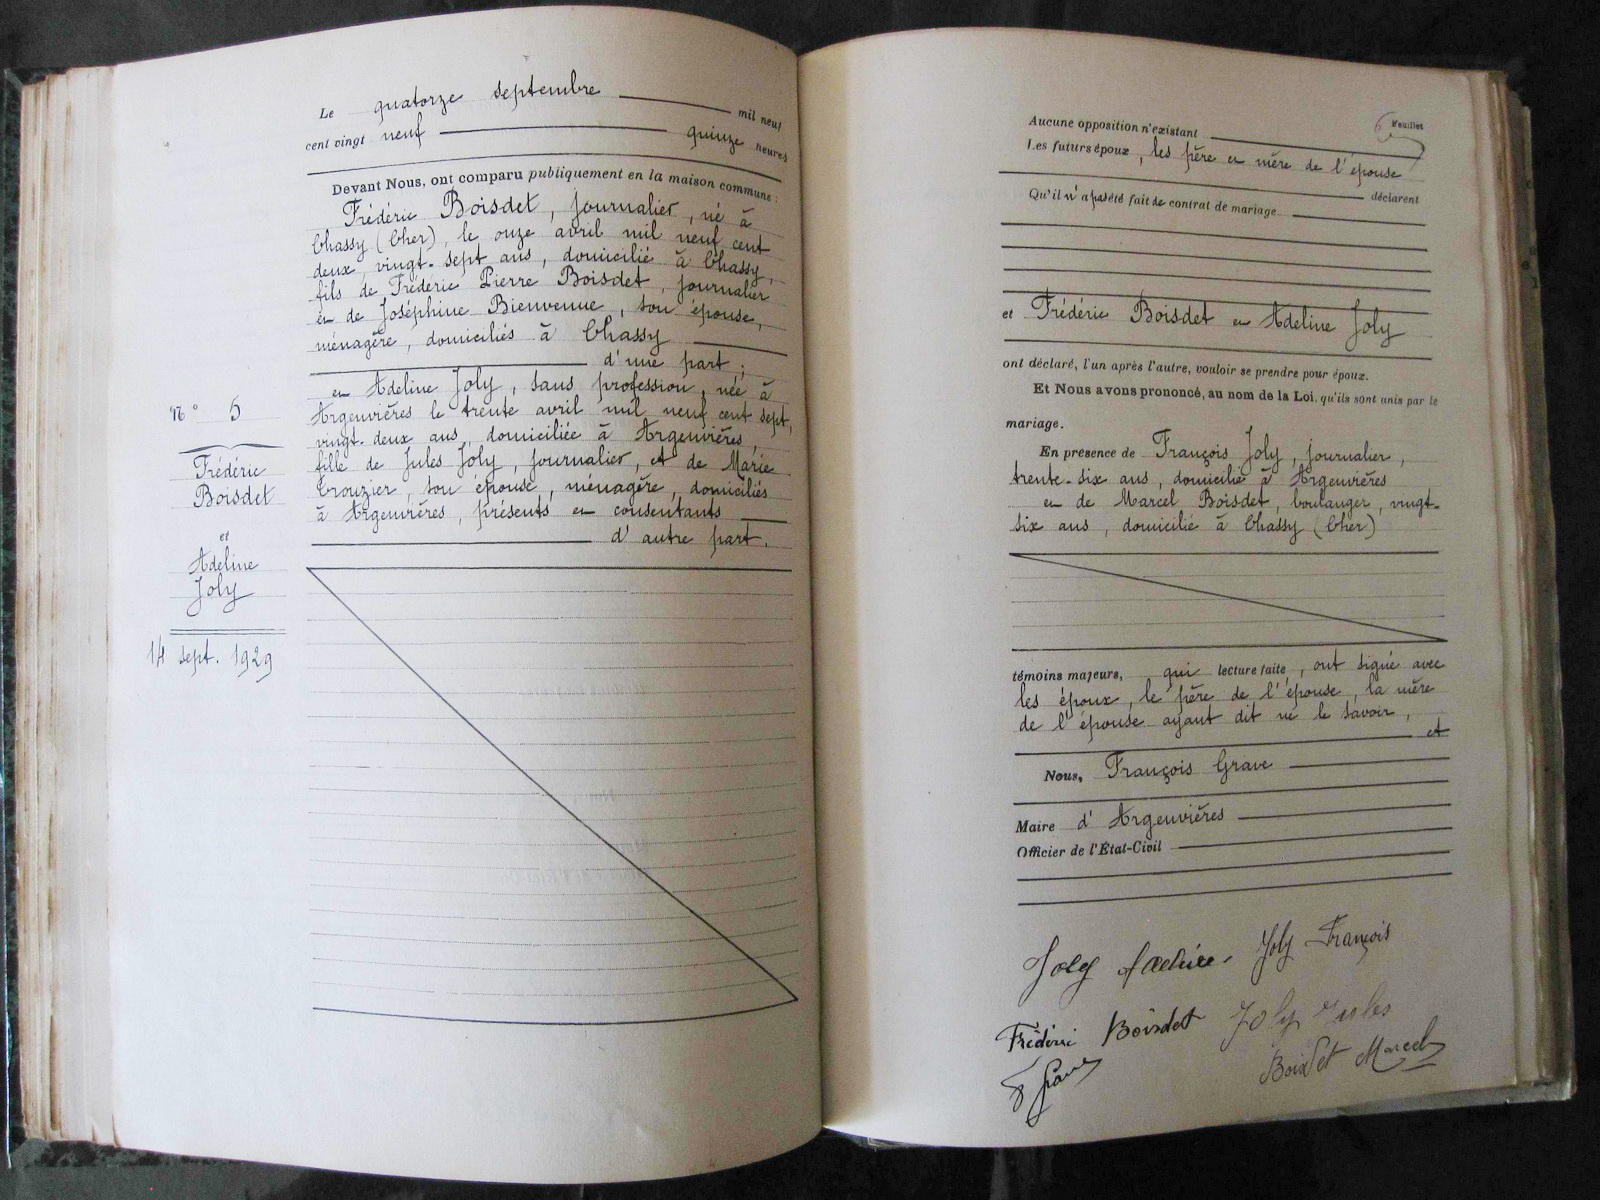 Le quatorze septembre mil neuf
cent vingt neuf quinze heures
Devant Nous, ont comparu publiquement en la maison commune :
Frédéric Boisdet, journalier, né à
Chassy (Cher), le onze avril mil neuf cent
deux vingt-sept ans, domicilié à Chassy,
fils de Frédéric Pierre Boisdet, journalier
et de Joséphine Bienvenue, son épouse,
ménagère, domiciliés à Chassy
d'une part ;
et Adeline Joly, sans profession, née à
Argenvières le trente avril mil neuf cent sept,
vingt-deux ans, domiciliée à Argenvières,
fille de Jules Joly, journalier, et de Marie
Crouzier, son épouse, ménagère, domiciliés
à Argenvières, présents et consentants
d'autre part.
N° 5
Frédéric
Boisdet
et
Adeline
Joly
14 sept. 1929
6 Feuillet
Aucune opposition n'existant
Les futurs époux, les père et mère de l'épouse
déclarent
Qu'il n'a pas été fait de contrat de mariage
et Frédéric Boisdet et Adeline Joly
ont déclaré, l'un après l'autre, vouloir se prendre pour époux.
Et Nous avons prononcé, au nom de la Loi, qu'ils sont unis par le
mariage.
En présence de François Joly, journalier,
trente-six ans, domicilié à Argenvières
et de Marcel Boisdet, boulanger, vingt-
six ans, domicilié à Chassy (Cher)
témoins majeurs, qui lecture faite, ont signé avec
les époux, le père de l'épouse, la mère
de l'épouse ayant dit ne le savoir,
et
Nous, François Grave
Maire d'Argenvières
Officier de l'État-Civil
Joly Joly François
Frédéric Boisdet Joly Jules
F Grave Boisdet Marcel